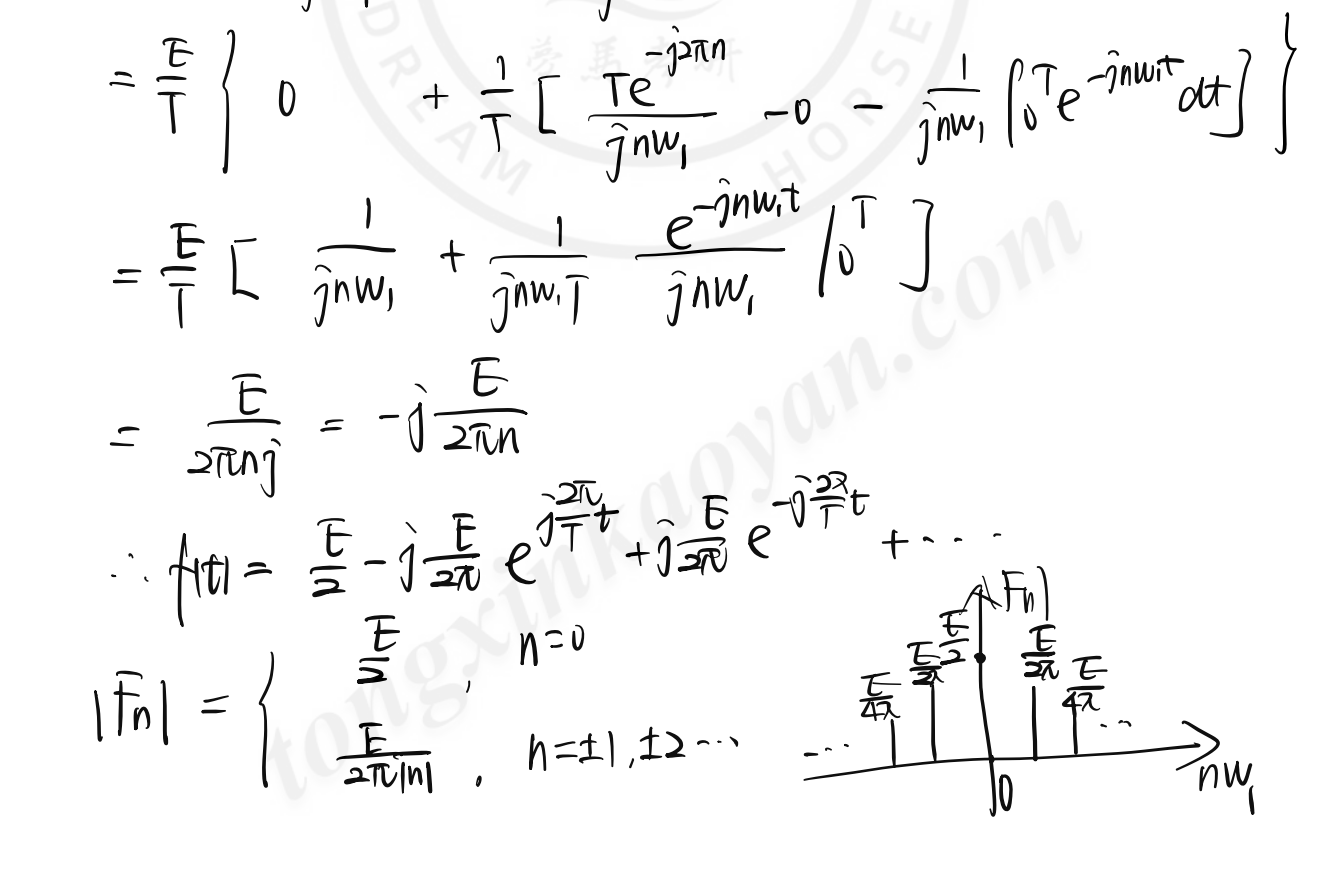 = E/T { 0 + 1/T [ Te^{-j2πn}/jnw₁ - 0 - 1/jnw₁ ∫₀ᵀ e^{-jnw₁t} dt ] }
= E/T [ 1/jnw₁ + 1/jnw₁T e^{-jnw₁t}/jnw₁ |₀ᵀ ]
= E/2πnj = -j E/2πn
∴ f(t) = E/2 - j E/2π e^{j 2π/T t} + j E/2π e^{-j 2π/T t} + ····
|Fn| = { E/2 , n=0
E/2π|n| , n=±1,±2···
|Fn|
··· E/4π E/2π E/2 E/2π E/4π ···
0 nw₁
DREAM HORSE
tongxinkaoyan.com